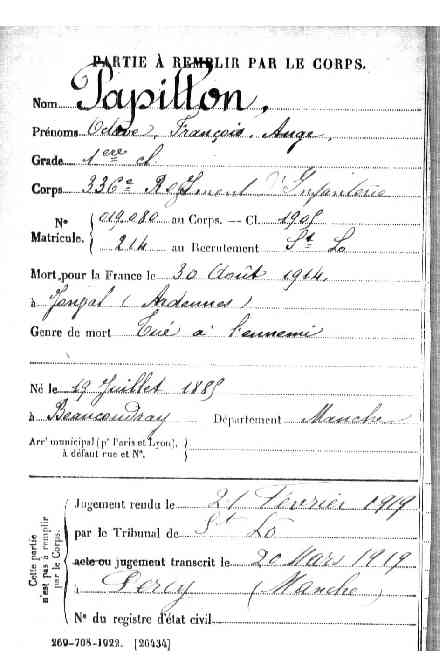 PARTIE À REMPLIR PAR LE CORPS.
Nom Papillon,
Prénoms Octave, François, Ange,
Grade 1ère cl.
Corps 336e Régiment d'Infanterie
N° Matricule. { 019.080 au Corps. — Cl. 1905
214 au Recrutement St Lo
Mort pour la France le 30 Août 1914
à (Ardennes)
Genre de mort Tué à l'ennemi
Né le 19 Juillet 1885
à Beaucoudray Département Manche
Arrt municipal (pr Paris et Lyon), à défaut rue et N°.
Cette partie n'est pas à remplir par le Corps.
Jugement rendu le 21 Février 1919
par le Tribunal de St Lo
acte ou jugement transcrit le 20 Mars 1919
Percy (Manche)
N° du registre d'état civil
269-708-1922. [26434]